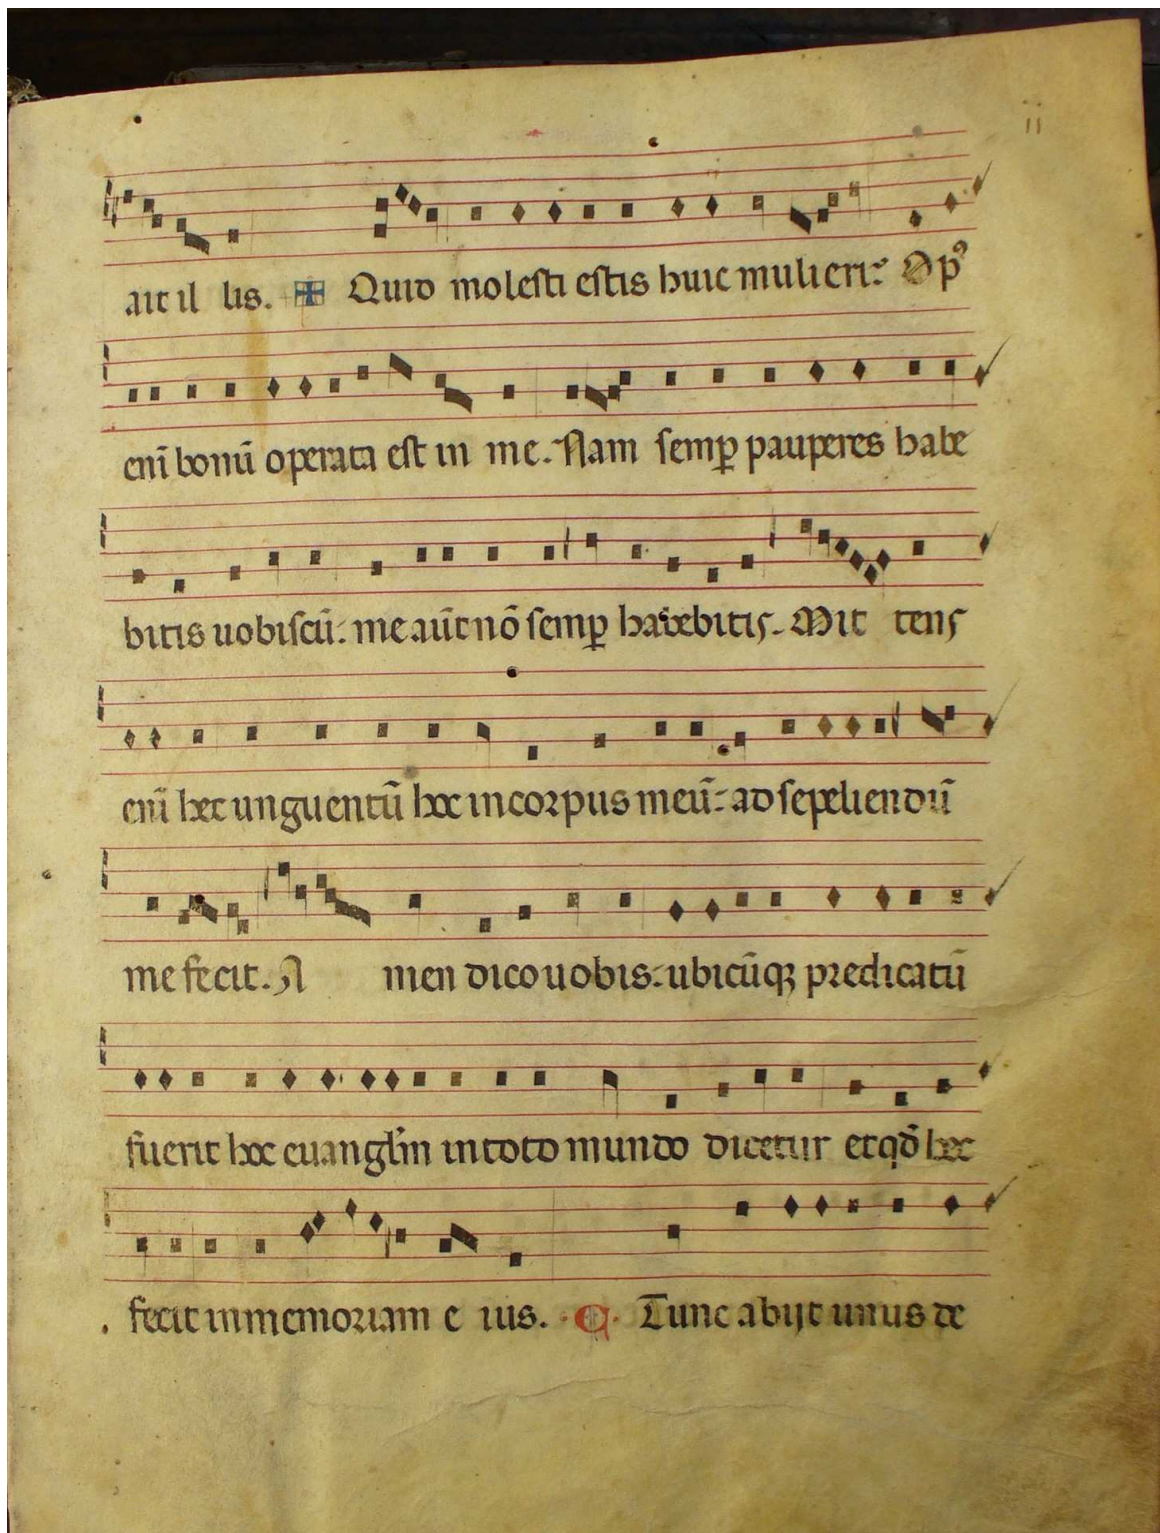 ii
ait il lis. ✠ Quid molesti estis huic mulieri? Opꝰ
eni᷑ bonū operata est in me. Nam semꝑ pauperes habe
bitis uobiscū: me aūt nō semꝑ habebitis. Mit tens
enī hec unguentū hoc in corpus meū: ad sepeliendū
me fecit. A men dico uobis: ubicūqꝫ predicatū
fuerit hoc euanglīu in toto mundo dicetur et qđ hec
fecit in memoriam e ius. C Tunc abijt unus de